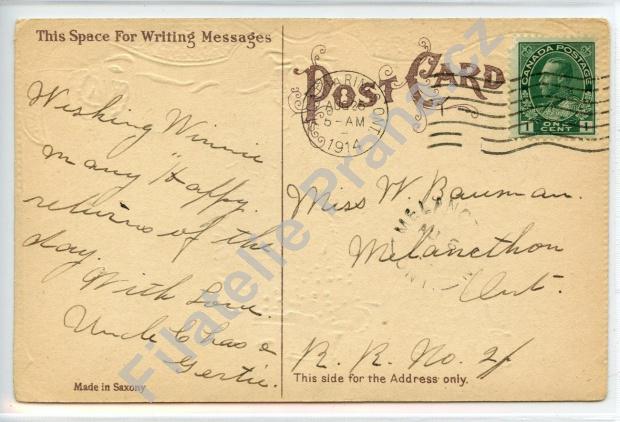 This Space For Writing Messages
POST CARD
CANADA POSTAGE
1 ONE CENT 1
AUG 26
5-AM
1914
ONT.
Wishing Winnie
many "Happy
returns of the
day.
With Love.
Uncle Chas &
Gertie.
Miss W Bauman.
Melancthon
Ont.
R. R. No. 2/
MELANC
ONT
Made in Saxony
This side for the Address only.
Filatelie Praha.cz